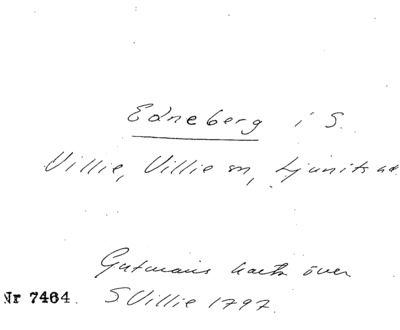 Edneberg i S.
Villie, Villie sn, Ljunits hd.
Gutmans karta över
Nr 7464. S Villie 1797.